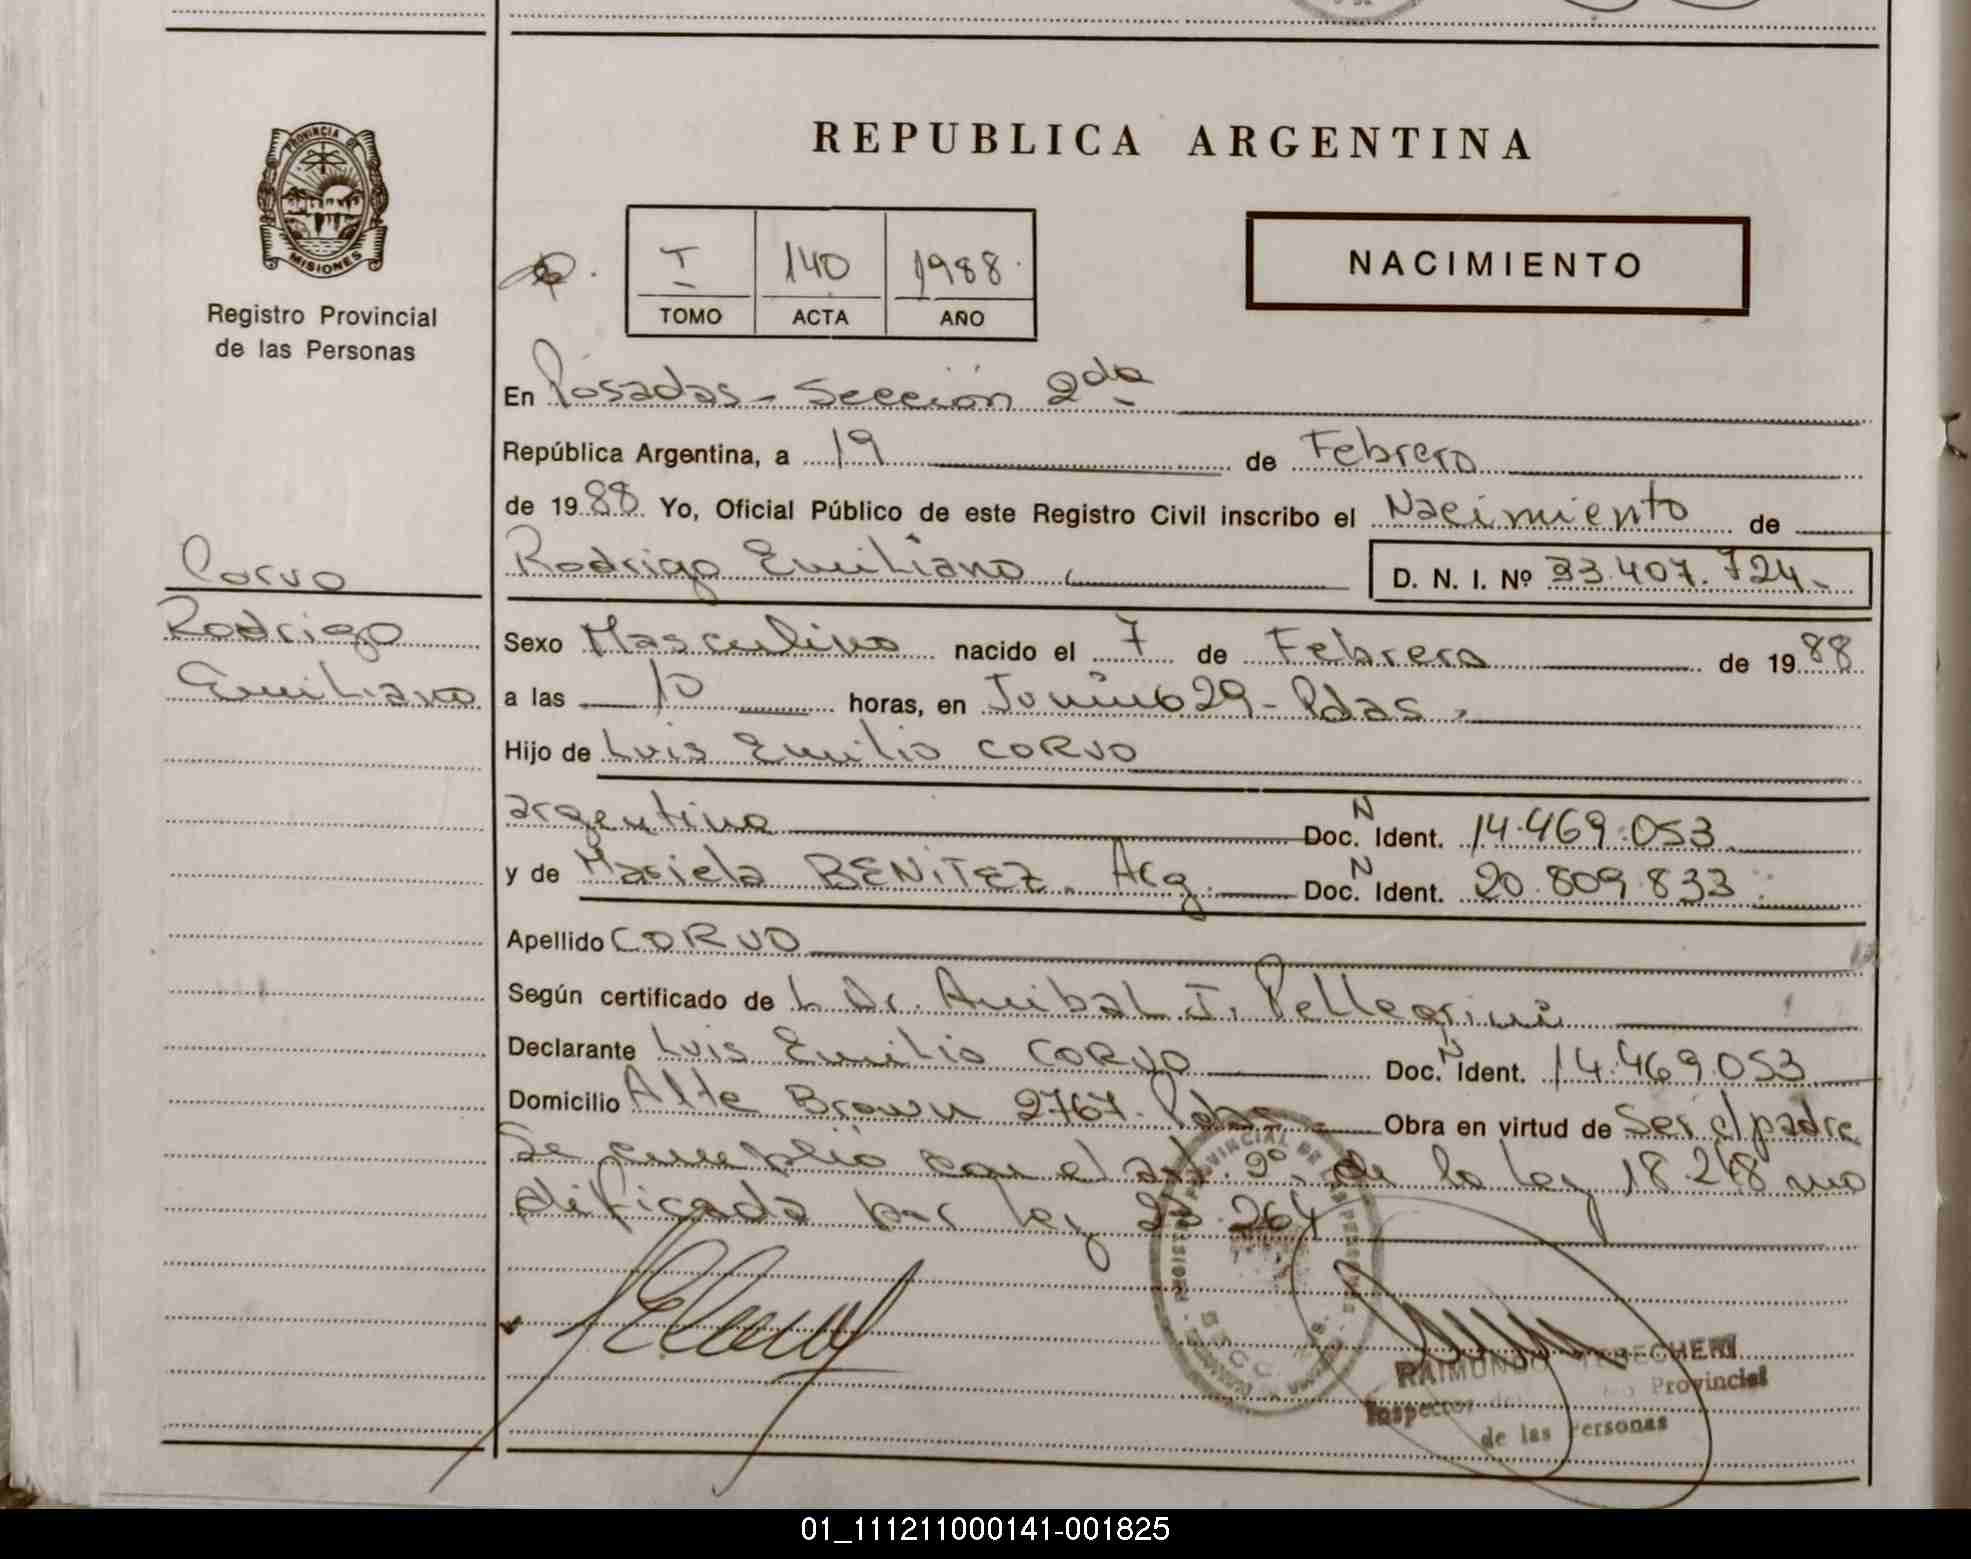 REPUBLICA ARGENTINA
PROVINCIA DE
MISIONES
Registro Provincial
de las Personas
I 140 1988
TOMO ACTA AÑO
NACIMIENTO
En Posadas - Sección 2da
República Argentina, a 19 de Febrero
de 1988 Yo, Oficial Público de este Registro Civil inscribo el Nacimiento de
Corvo
Rodrigo
Emiliano
Rodrigo Emiliano D. N. I. Nº 33.407.724
Sexo Masculino nacido el 7 de Febrero de 1988
a las 10 horas, en Junín 629 - Pdas.
Hijo de Luis Emilio CORVO
argentino Doc. N Ident. 14.469.053
y de Mariela BENITEZ. Arg. Doc. N Ident. 20.809.833
Apellido CORVO
Según certificado de L Dr. Anibal J. Pellegrini
Declarante Luis Emilio CORVO Doc. N Ident. 14.469.053
Domicilio Alte Brown 2767. Pdas Obra en virtud de Ser el padre
Se cumplió con el art. 2º de la ley 18.248 mo
dificada por ley 23.264
RAIMUNDO
Inspector Provincial
de las Personas
01_111211000141-001825